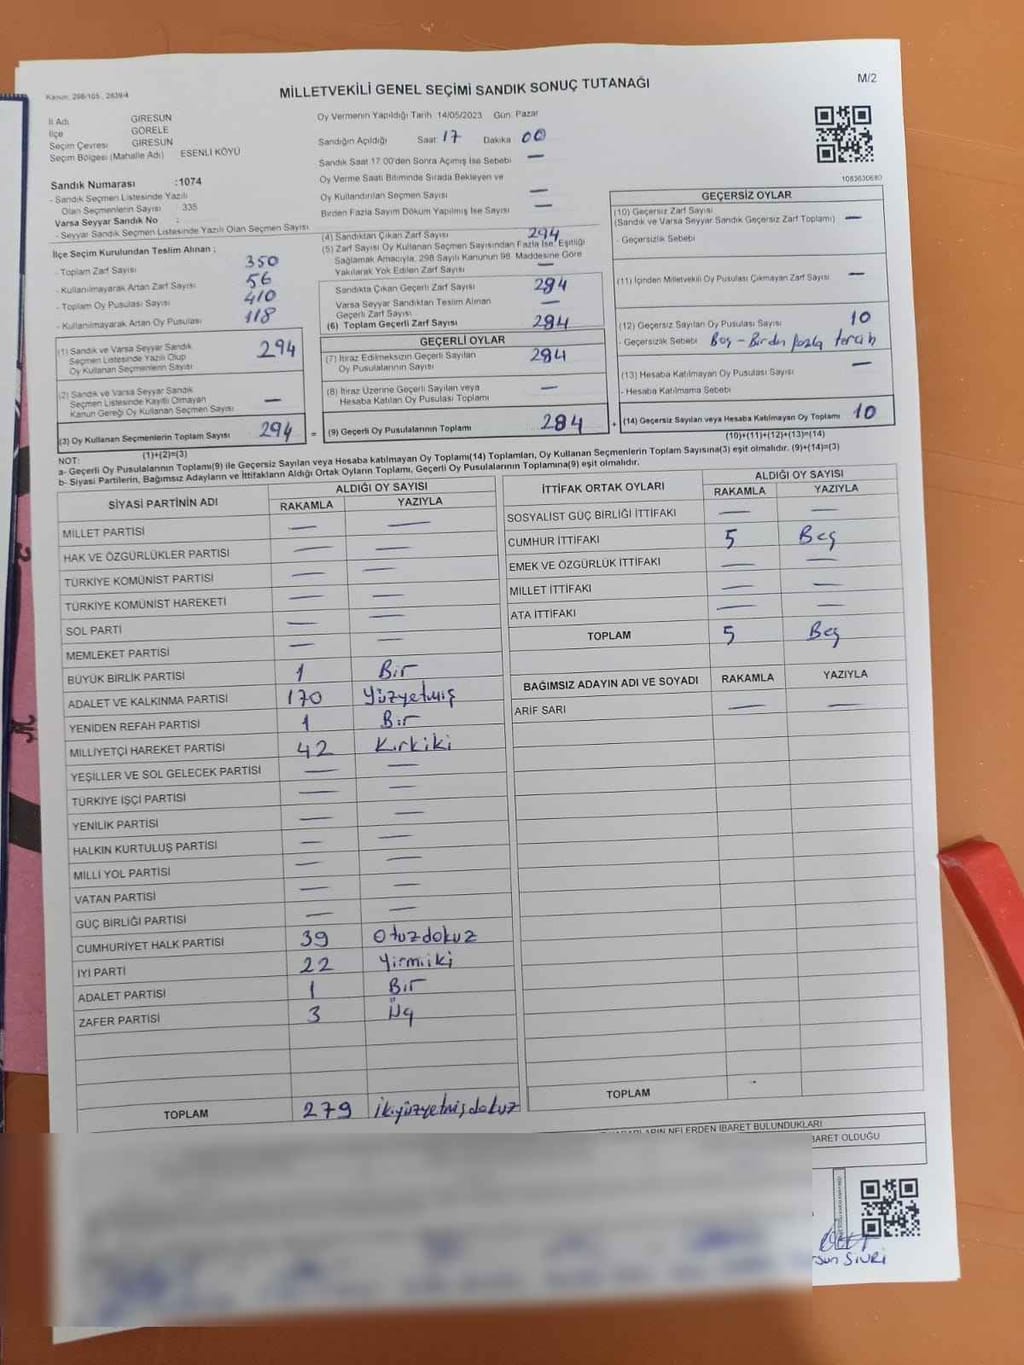 Kanun: 298/105 , 2839/4
MİLLETVEKİLİ GENEL SEÇİMİ SANDIK SONUÇ TUTANAĞI
M/2
İl Adı GİRESUN
İlçe GÖRELE
Seçim Çevresi GİRESUN
Seçim Bölgesi (Mahalle Adı) ESENLİ KÖYÜ
Sandık Numarası :1074
- Sandık Seçmen Listesinde Yazılı
Olan Seçmenlerin Sayısı : 335
Varsa Seyyar Sandık No :
- Seyyar Sandık Seçmen Listesinde Yazılı Olan Seçmen Sayısı
Oy Vermenin Yapıldığı Tarih 14/05/2023 Gün: Pazar
Sandığın Açıldığı Saat: 17 Dakika 00
Sandık Saat 17.00'den Sonra Açımış İse Sebebi —
Oy Verme Saati Bitiminde Sırada Bekleyen ve
Oy Kullandırılan Seçmen Sayısı —
Birden Fazla Sayım Döküm Yapılmış İse Sayısı —
1083630680
İlçe Seçim Kurulundan Teslim Alınan ;
- Toplam Zarf Sayısı 350
- Kullanılmayarak Artan Zarf Sayısı 56
- Toplam Oy Pusulası Sayısı 410
- Kullanılmayarak Artan Oy Pusulası 118
(1) Sandık ve Varsa Seyyar Sandık
Seçmen Listesinde Yazılı Olup
Oy Kullanan Seçmenlerin Sayısı 294
(2) Sandık ve Varsa Seyyar Sandık
Seçmen Listesinde Kayıtlı Olmayan
Kanun Gereği Oy Kullanan Seçmen Sayısı —
(3) Oy Kullanan Seçmenlerin Toplam Sayısı 294
(1)+(2)=(3)
(4) Sandıktan Çıkan Zarf Sayısı 294
(5) Zarf Sayısı Oy Kullanan Seçmen Sayısından Fazla İse, Eşitliği
Sağlamak Amacıyla, 298 Sayılı Kanunun 98. Maddesine Göre
Yakılarak Yok Edilen Zarf Sayısı —
Sandıkta Çıkan Geçerli Zarf Sayısı 284
Varsa Seyyar Sandıktan Teslim Alınan
Geçerli Zarf Sayısı —
(6) Toplam Geçerli Zarf Sayısı 284
GEÇERLİ OYLAR
(7) İtiraz Edilmeksizin Geçerli Sayılan
Oy Pusulalarının Sayısı 284
(8) İtiraz Üzerine Geçerli Sayılan veya
Hesaba Katılan Oy Pusulası Toplamı —
= (9) Geçerli Oy Pusulalarının Toplamı 284 +
GEÇERSİZ OYLAR
(10) Geçersiz Zarf Sayısı
(Sandık ve Varsa Seyyar Sandık Geçersiz Zarf Toplamı) —
- Geçersizlik Sebebi
(11) İçinden Milletvekili Oy Pusulası Çıkmayan Zarf Sayısı —
(12) Geçersiz Sayılan Oy Pusulası Sayısı 10
- Geçersizlik Sebebi Boş - Birden fazla tercih
(13) Hesaba Katılmayan Oy Pusulası Sayısı —
- Hesaba Katılmama Sebebi
(14) Geçersiz Sayılan veya Hesaba Katılmayan Oy Toplamı 10
(10)+(11)+(12)+(13)=(14)
NOT:
a- Geçerli Oy Pusulalarının Toplamı(9) ile Geçersiz Sayılan veya Hesaba katılmayan Oy Toplamı(14) Toplamları, Oy Kullanan Seçmenlerin Toplam Sayısına(3) eşit olmalıdır. (9)+(14)=(3)
b- Siyasi Partilerin, Bağımsız Adayların ve İttifakların Aldığı Ortak Oyların Toplamı, Geçerli Oy Pusulalarının Toplamına(9) eşit olmalıdır.
SİYASİ PARTİNİN ADI
ALDIĞI OY SAYISI
RAKAMLA YAZIYLA
MİLLET PARTİSİ — —
HAK VE ÖZGÜRLÜKLER PARTİSİ — —
TÜRKİYE KOMÜNİST PARTİSİ — —
TÜRKİYE KOMÜNİST HAREKETİ — —
SOL PARTİ — —
MEMLEKET PARTİSİ — —
BÜYÜK BİRLİK PARTİSİ 1 Bir
ADALET VE KALKINMA PARTİSİ 170 Yüzyetmiş
YENİDEN REFAH PARTİSİ 1 Bir
MİLLİYETÇİ HAREKET PARTİSİ 42 Kırkiki
YEŞİLLER VE SOL GELECEK PARTİSİ — —
TÜRKİYE İŞÇİ PARTİSİ — —
YENİLİK PARTİSİ — —
HALKIN KURTULUŞ PARTİSİ — —
MİLLİ YOL PARTİSİ — —
VATAN PARTİSİ — —
GÜÇ BİRLİĞİ PARTİSİ — —
CUMHURİYET HALK PARTİSİ 39 Otuzdokuz
İYİ PARTİ 22 Yirmiiki
ADALET PARTİSİ 1 Bir
ZAFER PARTİSİ 3 Üç
TOPLAM 279 ikiyüzyetmişdokuz
İTTİFAK ORTAK OYLARI
ALDIĞI OY SAYISI
RAKAMLA YAZIYLA
SOSYALİST GÜÇ BİRLİĞİ İTTİFAKI — —
CUMHUR İTTİFAKI 5 Beş
EMEK VE ÖZGÜRLÜK İTTİFAKI — —
MİLLET İTTİFAKI — —
ATA İTTİFAKI — —
TOPLAM 5 Beş
BAĞIMSIZ ADAYIN ADI VE SOYADI RAKAMLA YAZIYLA
ARİF SARI — —
TOPLAM
NELERDEN İBARET BULUNDUKLARI
BARET OLDUĞU
SİVRİ